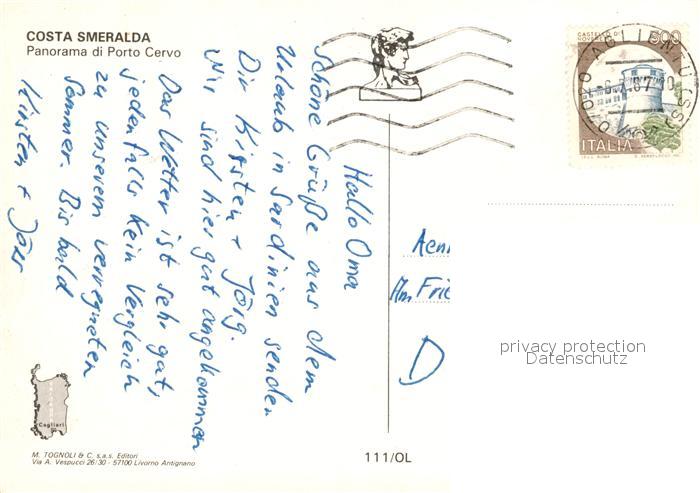 COSTA SMERALDA
Panorama di Porto Cervo
Hallo Oma
Schöne Grüße aus dem
Urlaub in Sardinien senden
Dir Kirsten + Jörg.
Wir sind hier gut angekommen
Das Wetter ist sehr gut,
jedenfalls kein Vergleich
zu unserem verregneten
Sommer. Bis bald
Kirsten + Jörg
Am Frie
D
CASTELLO DI
ROVERETO
500
ITALIA
AGLIENTU
Cagliari
M. TOGNOLI & C. s.a.s. Editori
Via A. Vespucci 26/30 - 57100 Livorno Antignano
111/OL
privacy protection
Datenschutz